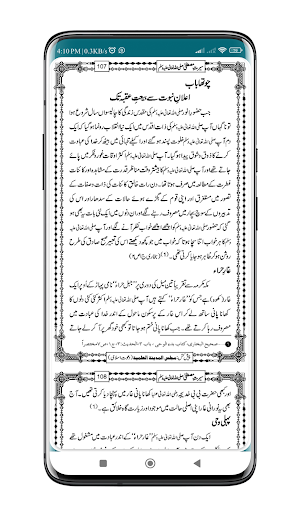 4:10 PM | 0.3KB/s
سیرتِ مصطفیٰ صلی اللہ تعالیٰ علیہ وسلم 107
چوتھا باب
اعلانِ نبوت سے بیعتِ عقبہ تک
جب حضور انور صلی اللہ تعالیٰ علیہ وسلم کی مقدس زندگی کا چالیسواں سال شروع ہوا
تو ناگہاں آپ صلی اللہ تعالیٰ علیہ وسلم کی ذات اقدس میں ایک نیا انقلاب رونما ہو گیا کہ ایک
دم آپ صلی اللہ تعالیٰ علیہ وسلم خلوت پسند ہو گئے اور اکیلے تنہائی میں بیٹھ کر خدا کی عبادت
کرنے کا ذوق و شوق پیدا ہو گیا۔ آپ صلی اللہ تعالیٰ علیہ وسلم اکثر اوقات غور و فکر میں پائے
جاتے تھے اور آپ صلی اللہ تعالیٰ علیہ وسلم کا بیشتر وقت مناظر قدرت کے مشاہدہ اور کائنات
فطرت کے مطالعہ میں صرف ہوتا تھا۔ دن رات خالق کائنات کی ذات و صفات کے
تصور میں مستغرق اور اپنی قوم کے بگڑے ہوئے حالات کے سدھار اور اس کی
تدبیروں کے سوچ بچار میں مصروف رہنے لگے اور ان دنوں میں ایک نئی بات یہ بھی ہو
گئی کہ حضور صلی اللہ تعالیٰ علیہ وسلم کو اچھے اچھے خواب نظر آنے لگے اور آپ صلی اللہ تعالیٰ علیہ
وسلم کا ہر خواب اتنا سچا ہوتا کہ خواب میں جو کچھ دیکھتے اس کی تعبیر صبح صادق کی طرح
روشن ہو کر ظاہر ہو جایا کرتی تھی۔ (1) (بخاری ج۱ ص۲)
غارِ حراء
مکہ مکرمہ سے تقریباً تین میل کی دوری پر "جبل حراء" نامی پہاڑ کے اوپر ایک
غار (کھوہ) ہے جس کو "غار حراء" کہتے ہیں۔ آپ صلی اللہ تعالیٰ علیہ وسلم اکثر کئی کئی دنوں کا
کھانا پانی ساتھ لے کر اس غار کے پرسکون ماحول کے اندر خدا کی عبادت میں
مصروف رہا کرتے تھے۔ جب کھانا پانی ختم ہو جاتا تو کبھی خود گھر پر آ کر لے جاتے
مجلس المدینۃ العلمیۃ (دعوتِ اسلامی)
سیرتِ مصطفیٰ صلی اللہ تعالیٰ علیہ وسلم 108
اور کبھی حضرت بی بی خدیجہ رضی اللہ تعالیٰ عنہا کھانا پانی غار میں پہنچا دیا کرتی تھیں۔ آج
بھی یہ نورانی غار اپنی اصلی حالت میں موجود اور زیارت گاہ خلائق ہے۔ (1)
پہلی وحی
ایک دن آپ صلی اللہ تعالیٰ علیہ وسلم "غار حراء" کے اندر عبادت میں مشغول تھے